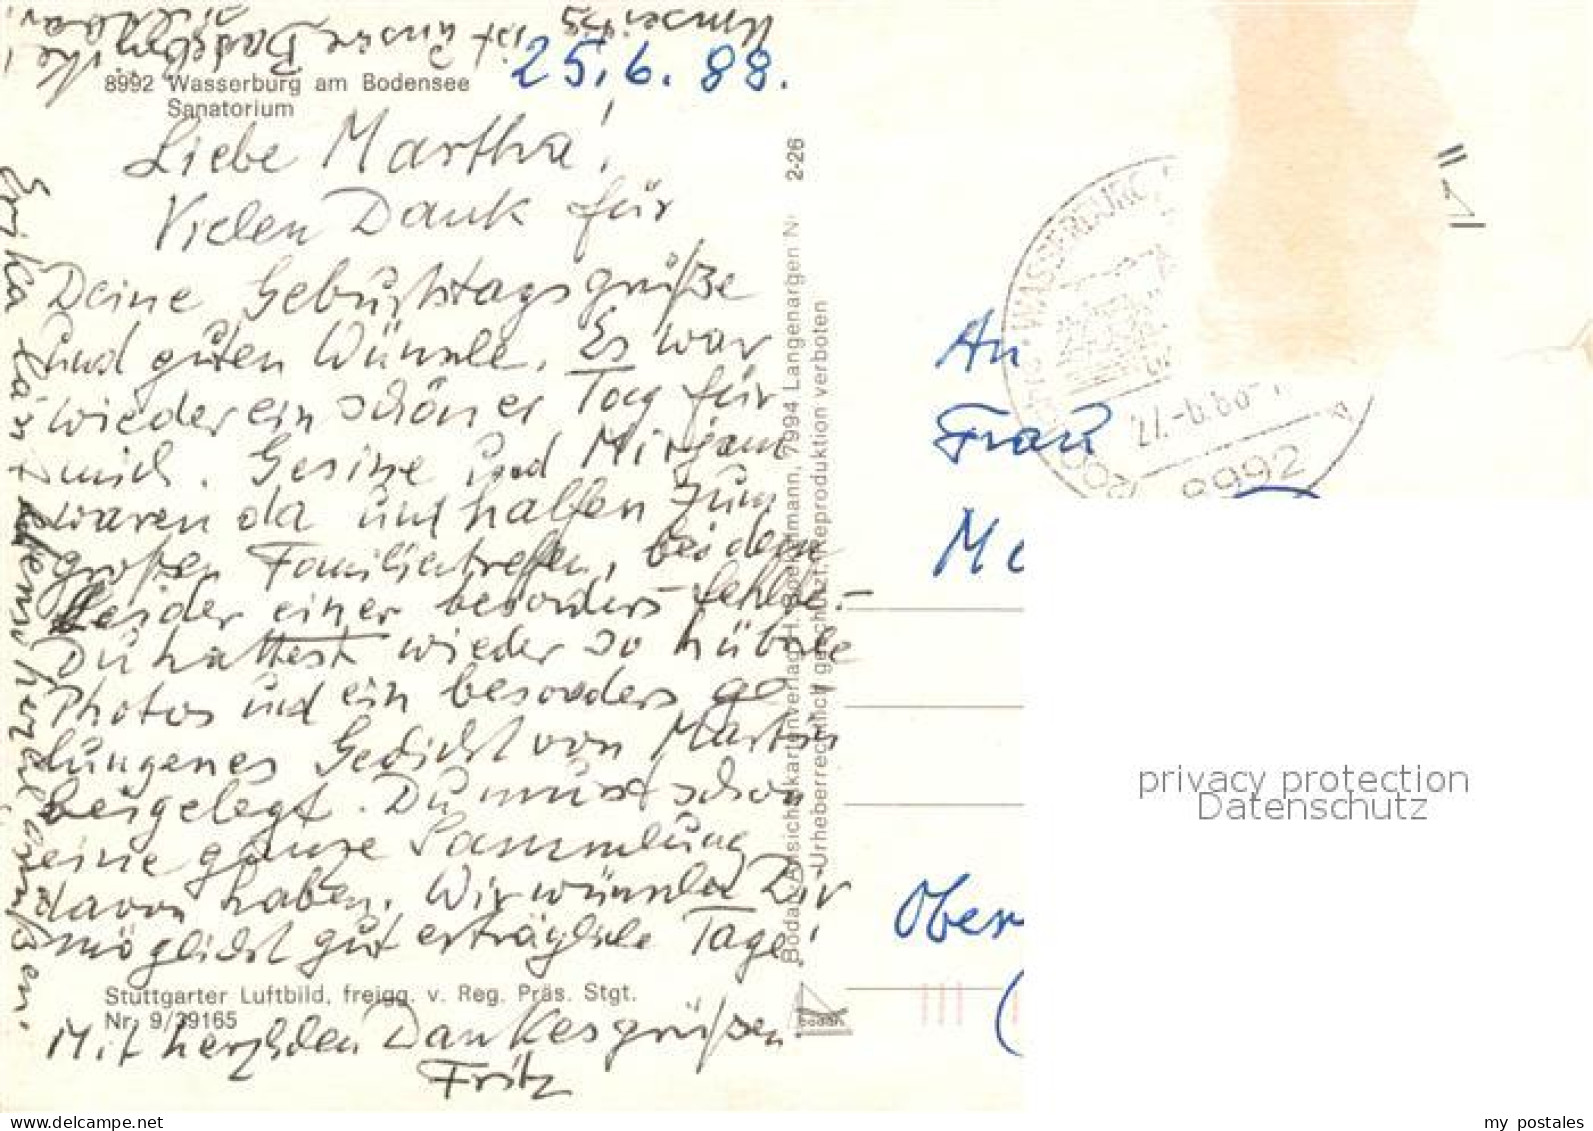 Umseitig
ist unsere Badebucht
25.6.88.
8992 Wasserburg am Bodensee
Sanatorium
Liebe Martha!
Vielen Dank für
Deine Geburtstagsgrüße
und guten Wünsche. Es war
wieder ein schöner Tag für
mich. Gesine und Mirjam
waren da und halfen zum
großen Familientreffen, bei dem
leider einer besonders fehlte. –
Du hattest wieder so hübsche
Photos und ein besonders ge-
lungenes Gedicht von Martin
beigelegt. Du musst schon
eine ganze Sammlung
davon haben. Wir wünschen Dir
möglichst gut erträgliche Tage!
Stuttgarter Luftbild, freigg. v. Reg. Präs. Stgt.
Nr. 9/39165
Mit herzlichen Dankesgrüßen
Fritz
Erika läßt ebenso herzlich grüßen.
2-26
Bodan-Ansichtskartenverlag H. Boekelmann, 7994 Langenargen
Urheberrechtlich geschützt, Reproduktion verboten
bodan
WASSERBURG
27.-6.88-1
8992
"1
An
Frau
M
Ober
(
privacy protection
Datenschutz
www.delcampe.net
my_postales